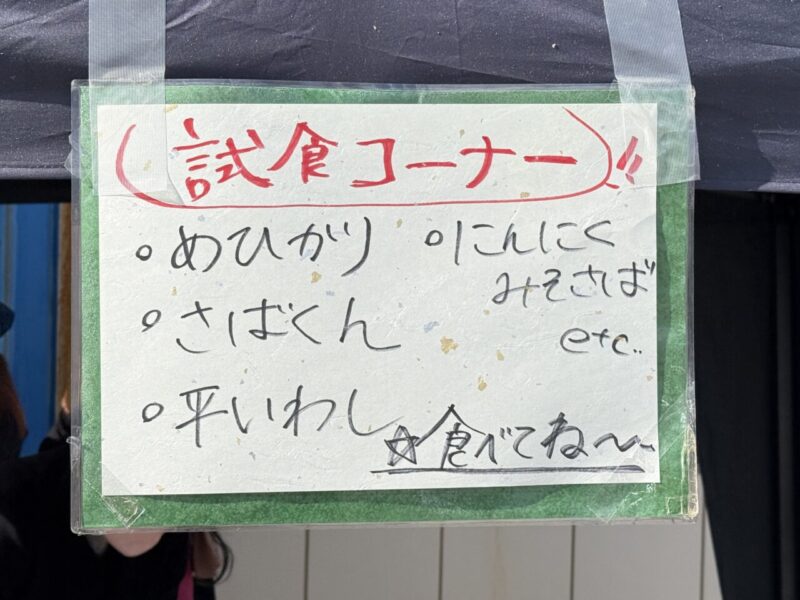 試食コーナー!!
○めひかり
○さばくん
○平いわし
○にんにく
みそさば
etc..
☆食べてね〜